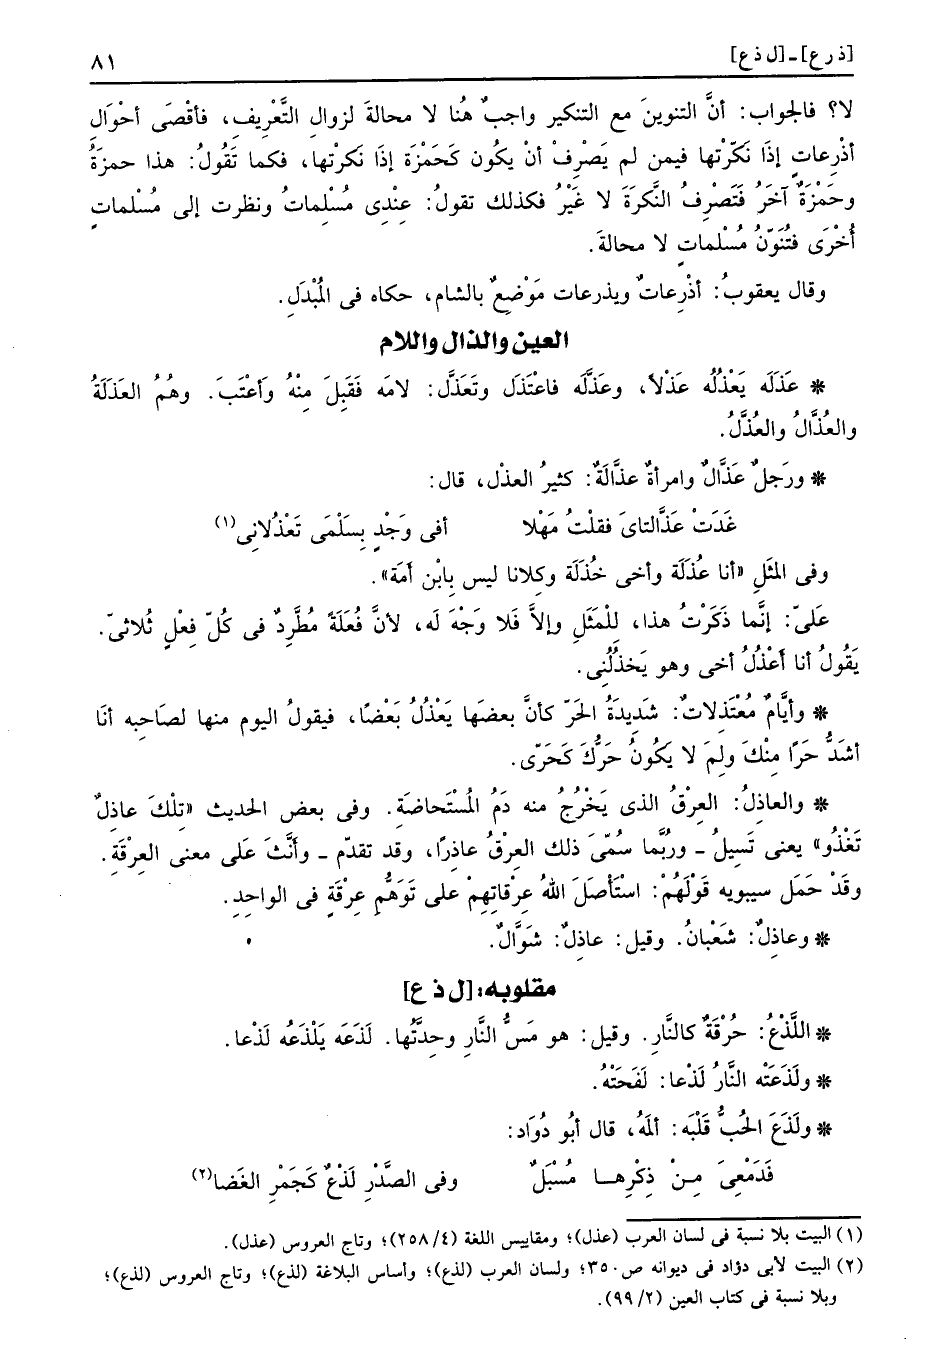 [ذ ر ع] ـ [ل ذ ع]
٨١
لا؟ فالجواب: أنَّ التنوينَ مع التنكير واجبٌ هُنا لا محالةَ لزوال التَّعْرِيف، فأقْصَى أحْوَال
أذْرِعاتٍ إذَا نَكّرْتها فيمن لم يَصْرِفْ أنْ يكُون كَحَمْزَة إذَا نَكرْتها، فكما تَقُولُ: هذا حمزَةُ
وحَمْزَةٌ آخَرُ فَتَصْرِفُ النَّكرَةَ لا غَيْرُ فكذلك تقولُ: عنْدِى مُسْلِماتُ ونظرت إلى مُسْلماتٍ
أُخْرَى فتُنَوّنُ مُسْلماتٍ لا محالةَ.
وقال يعقوبُ: أذْرِعاتٌ ويذرعات مَوْضِعٌ بالشام، حكاه فى المُبْدَلِ.
العين والذال واللام
* عَذَلَه يَعْذُلُه عَذْلاً، وعَذَّلَه فاعْتَذَل وتَعَذَّل: لامَه فَقَبِلَ مِنْهُ وأعْتَبَ. وهُمُ العَذَلَةُ
والعُذَّالُ والعُذَّلُ.
* ورَجلٌ عَذَّالٌ وامرأةٌ عذَّالَةٌ: كثيرُ العذْل، قال:
غَدَتْ عَذَّالتاىَ فقلْتُ مَهْلا أفى وَجْدٍ بِسَلْمَى تَعْذُلانِى(١)
وفى المثَلِ «أنا عُذَلَة وأخى خُذَلَة وكِلانا ليس بِابْن أمَة».
عَلىّ: إنَّما ذَكَرْتُ هذا، لِلْمَثَلِ وإلاَّ فَلا وَجْهَ لَه، لأنَّ فُعَلَةً مُطَّرِدٌ فى كُلّ فِعْلٍ ثُلاثىّ.
يَقُولُ أنا أعْذُلُ أخى وهو يَخذُلُنِى.
* وأيَّامٌ مُعْتَذلاتٌ: شَدِيدَةُ الحَرّ كأنَّ بعضَها يَعْذُلُ بَعْضًا، فيقولُ اليوم منها لصَاحبه أنَا
أشَدُّ حَرّا مِنْكَ ولِمَ لا يَكُونُ حَرُّكَ كَحَرّى.
* والعاذِلُ: العِرْقُ الذى يَخْرُجُ منه دَمُ المُسْتَحاضَةِ. وفى بعض الحديث «تِلْكَ عاذِلٌ
تَغْذُو» يعنى تَسِيلُ ـ ورُبَّما سُمّىَ ذلك العِرْقُ عاذِرًا، وقد تقدّم ـ وأنَّثَ عَلى معنى العِرقَةِ.
وقَدْ حَمَل سيبويه قَوْلَهُمْ: اسْتَأْصَلَ اللهُ عِرْقاتِهِمْ على تَوَهُّمِ عِرْقَةٍ فى الواحِدِ.
* وعاذِلٌ: شَعْبانُ. وقيل: عاذِلٌ: شَوَّالٌ.
مقلوبه: [ل ذ ع]
* اللَّذْعُ: حُرْقَةٌ كالنَّارِ. وقيل: هو مَسُّ النَّارِ وحِدَّتُها. لَذَعَه يَلْذَعُه لَذْعا.
* ولَذَعَتْه النَّارُ لَذْعا: لَفَحَتْهُ.
* ولَذَعَ الحُبُّ قَلْبَه: ألمَهُ، قال أبُو دُوَاد:
فَدَمْعِىَ مِنْ ذِكْرِها مُسْبَلٌ وفى الصَّدْرِ لَذْعٌ كَجَمْرِ الغَضا(٢)
(١) البيت بلا نسبة فى لسان العرب (عذل)؛ ومقاييس اللغة (٤/ ٢٥٨)؛ وتاج العروس (عذل).
(٢) البيت لأبى دؤاد فى ديوانه ص٣٥٠؛ ولسان العرب (لذع)؛ وأساس البلاغة (لذع)؛ وتاج العروس (لذع)؛
وبلا نسبة فى كتاب العين (٢/ ٩٩).